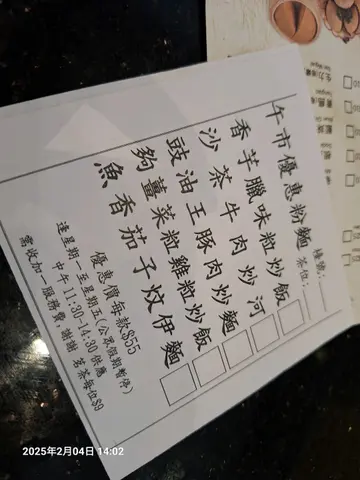 午市優惠粉麵 檯號:
茶位:
香芋臘味粒炒飯
沙茶牛肉炒河
豉油王豚肉炒麵
夠薑菜粒雞粒炒飯
魚香茄子炆伊麵
優惠價每款$55
逢星期一至星期五(公眾假期暫停)
中午11:30-14:30供應
需收加一服務費,謝謝 茗茶每位$9
2025年2月04日 14:02